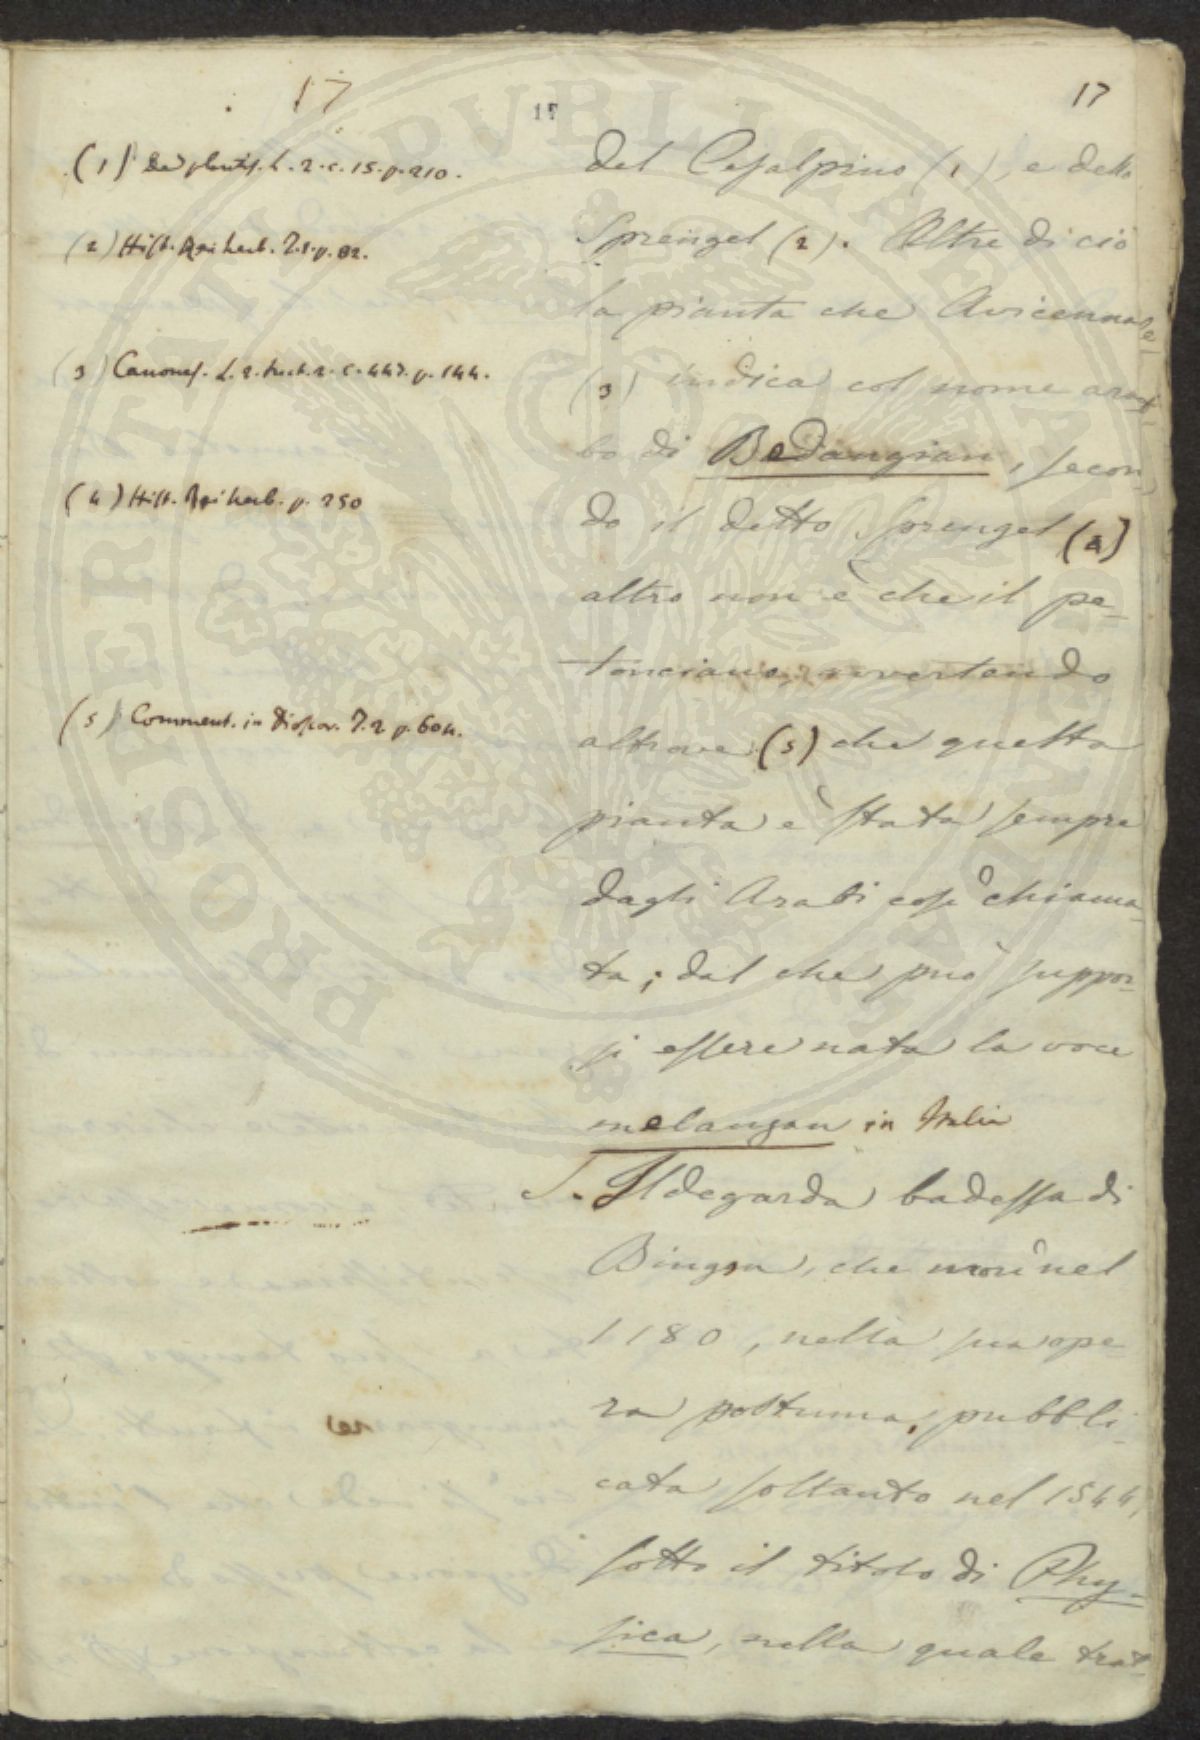 17
17
17
(1) De plantis. L. 2. c. 15. p. 210.
(2) Hist. Rei herb. T. 1. p. 82.
(3) Canones. L. 2. tract. 2. c. 447. p. 144.
(4) Hist. Rei herb. p. 250
(5) Comment. in Dioscor. T. 2 p. 604.
del Cesalpino (1), e dello
Sprengel (2). Oltre di ciò
la pianta che Avicenna
(3) indica col nome ara-
bo di Bedangian, secon-
do il detto Sprengel (4)
altro non è che il pe-
tonciano, avvertendo
altrove (5) che questa
pianta è stata sempre
dagli Arabi così chiama-
ta; dal che può suppor-
si essere nata la voce
melangan in Italia
S. Ildegarda badessa di
Bingen, che morì nel
1180, nella sua ope-
ra postuma, pubbli-
cata soltanto nel 1544,
sotto il titolo di Phy-
sica, nella quale trat-
PROSPERITATI PUBLICAE AUGENDAE